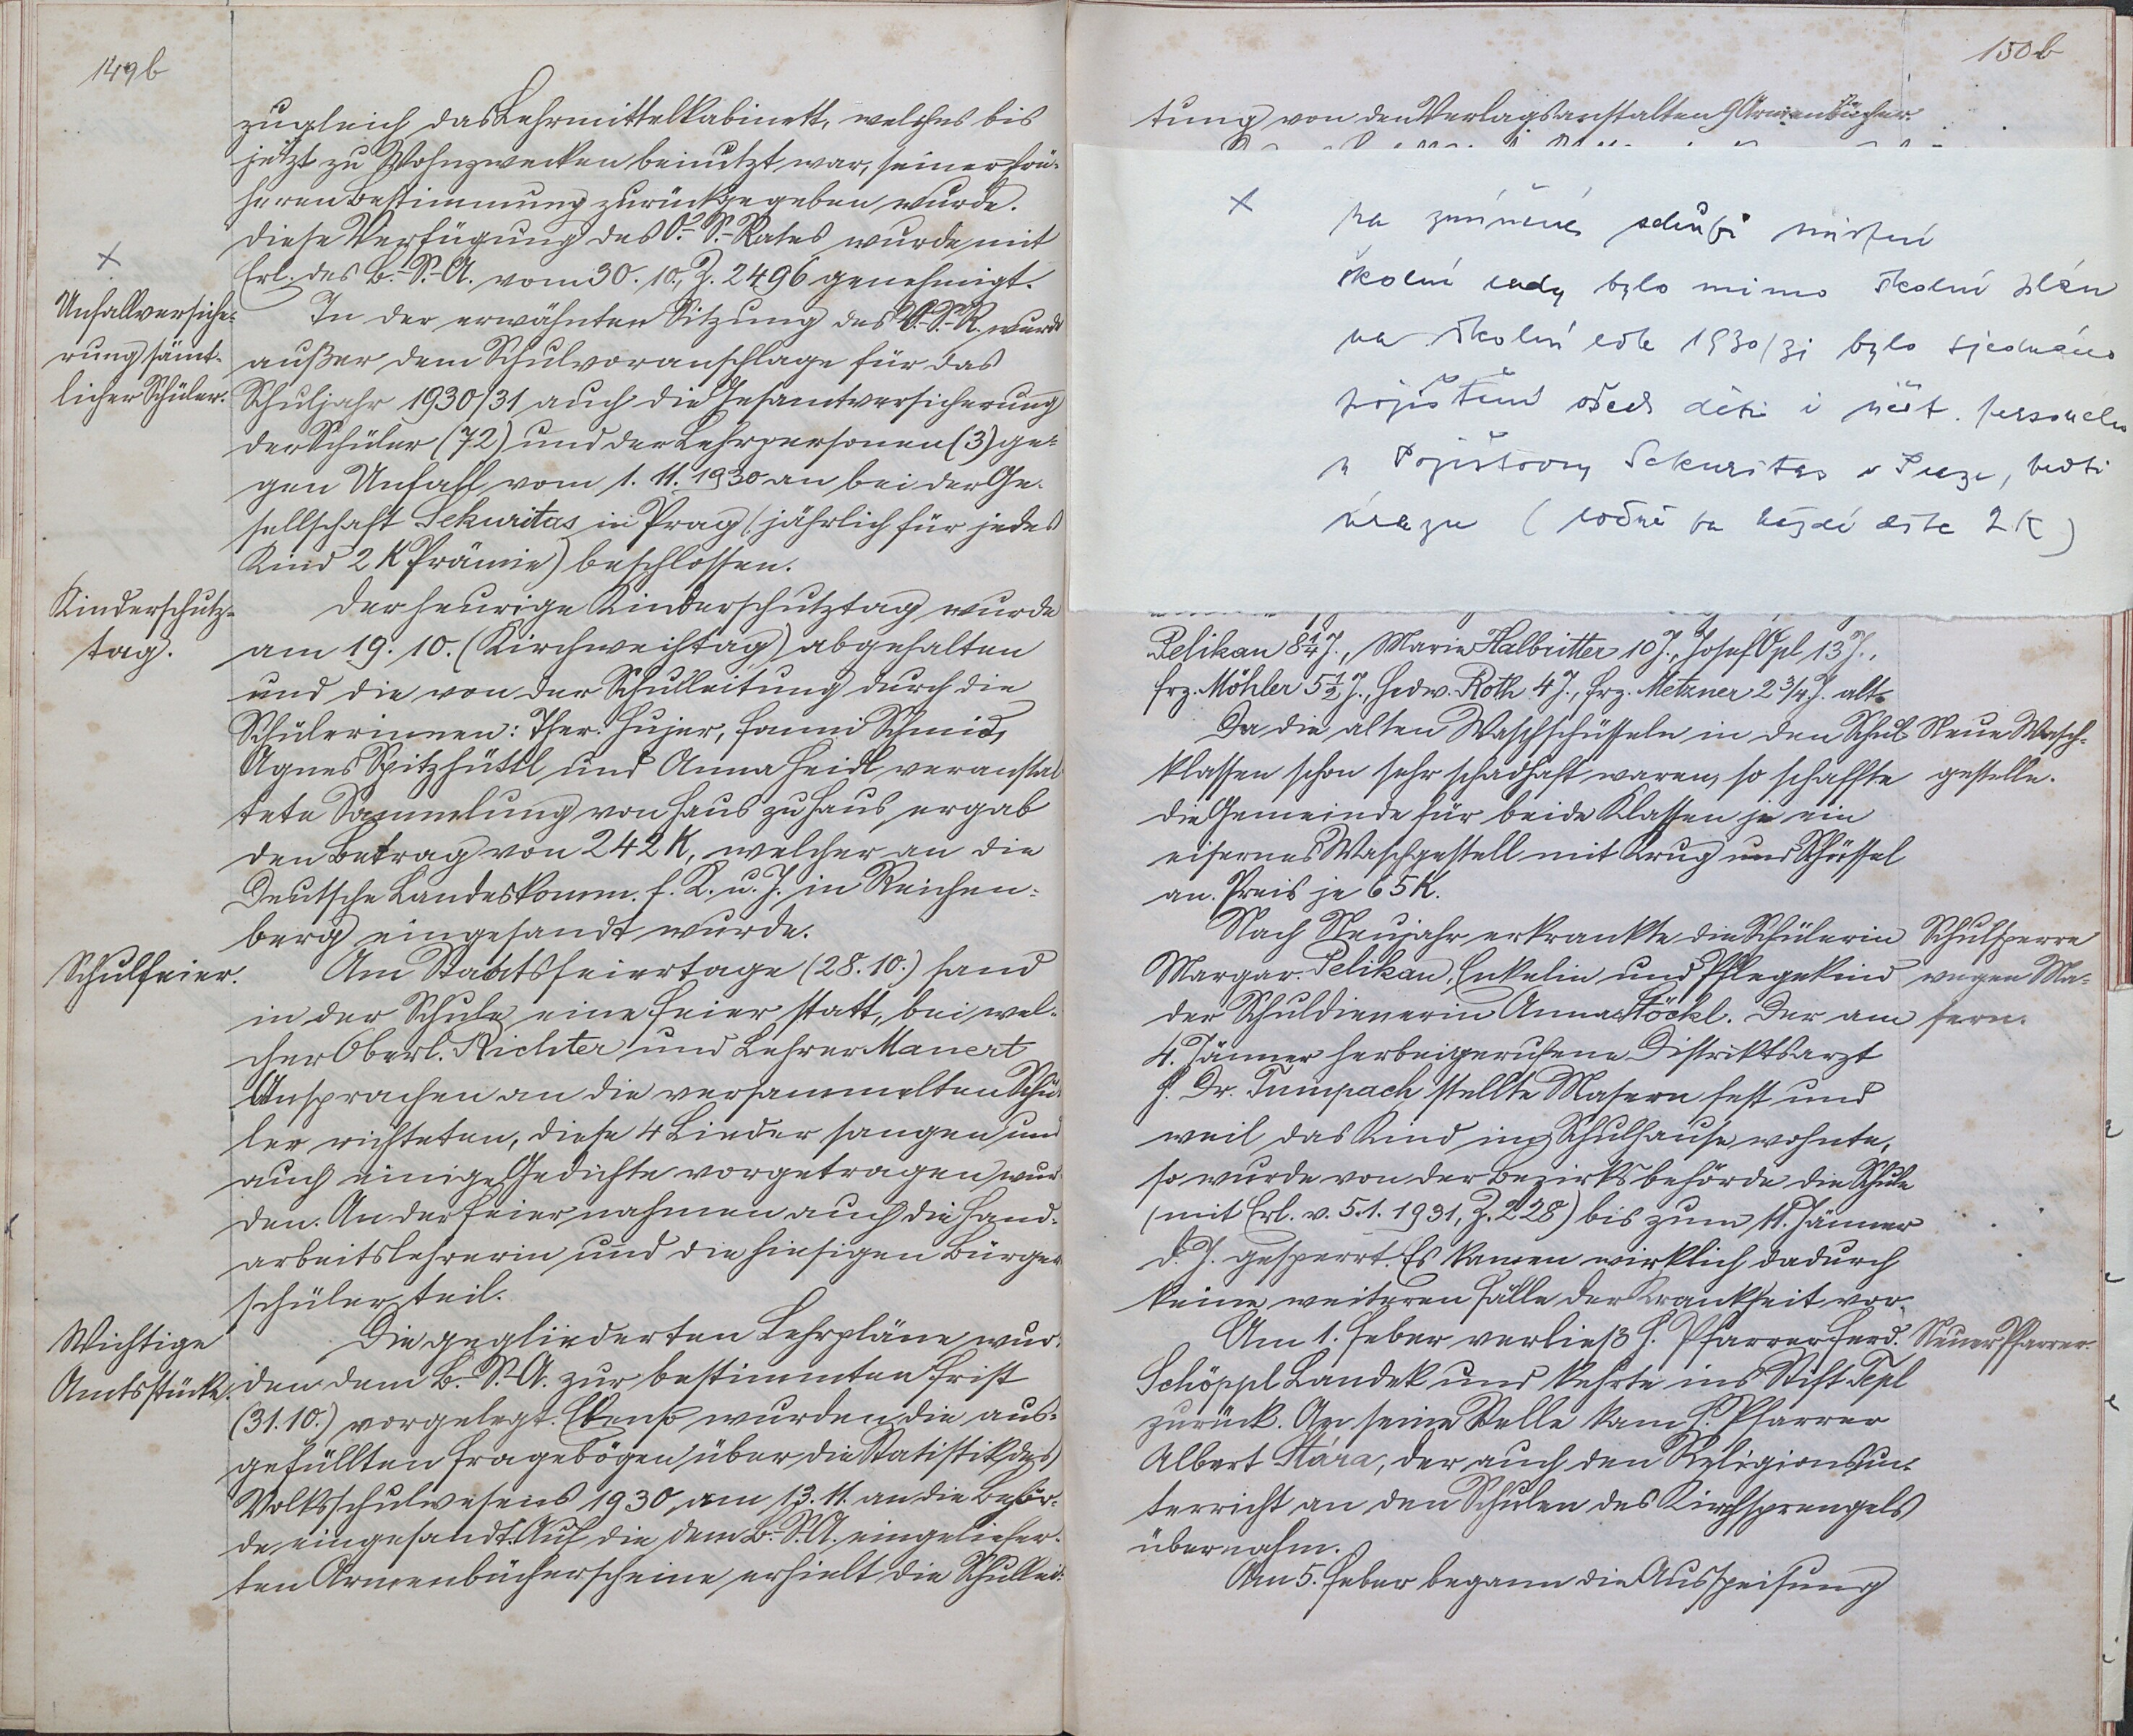 149b
zugleich das Lehrmittelkabinett, welches bis
jetzt zu Wohnzwecken benutzt war, seiner frü-
heren Bestimmung zurückgegeben wurde.
Diese Verfügung des O.-S.-Rates wurde mit
Erl. des B.-S.-A. vom 30. 10., Z. 2496 genehmigt.
x
Unfallversiche-
rung sämt-
licher Schüler.
In der erwähnten Sitzung des O.-S.-R. wurde
außer dem Schulvoranschlage für das
Schuljahr 1930/31 auch die Gesamtversicherung
der Schüler (72) und der Lehrpersonen (3) ge-
gen Unfall vom 1. 11. 1930 an bei der Ge-
sellschaft Sekuritas in Prag (jährlich für jedes
Kind 2 K Prämie) beschlossen.
Kinderschutz-
tag.
Der heurige Kinderschutztag wurde
am 19. 10. (Kirchweihtag) abgehalten
und die von der Schulleitung durch die
Schülerinnen: Ther. Hujer, Fanni Schmid,
Agnes Spitzhüttl und Anna Heidl veranstal-
tete Sammlung von Haus zu Haus ergab
den Betrag von 242 K, welcher an die
Deutsche Landeskomm. f. K. u. J. in Reichen-
berg eingesandt wurde.
Schulfeier.
Am Staatsfeiertage (28. 10.) fand
in der Schule eine Feier statt, bei wel-
cher Oberl. Richter und Lehrer Manert
Ansprachen an die versammelten Schü-
ler richteten, diese 4 Lieder sangen und
auch einige Gedichte vorgetragen wur-
den. An der Feier nahmen auch die Hand-
arbeitslehrerin und die hiesigen Bürger-
schüler teil.
Wichtige
Amtsstücke.
Die gegliederten Lehrpläne wur-
den dem B.-S.-A. zur bestimmten Frist
(31. 10.) vorgelegt. Ebenso wurden die aus-
gefüllten Fragebögen über die Statistik des
Volksschulwesens 1930 am 13. 11. an die Behör-
de eingesandt. Auf die dem B.-S.-A. eingeliefer-
ten Armenbücherscheine erhielt die Schullei-
150b
tung von den Verlagsanstalten 9 Armenbücher.
x na zmíněné schůzi místní
školní rady bylo mimo školní plán
na školní rok 1930/31 bylo sjednáno
pojištění všech dětí i učit. personelu
u Pojišťovny Sekuritas v Praze, proti
úrazu (ročně za každé dítě 2 K)
Pelikan 8¼ J., Marie Halbritter 10 J., Josef Öpl 13 J.,
Frz. Möhler 5½ J., Hedw. Roth 4 J., Frz. Metzner 2¾ J. alt.
Neue Wasch-
gestelle.
Da die alten Waschschüsseln in den Schul-
klassen schon sehr schadhaft waren, so schaffte
die Gemeinde für beide Klassen je ein
eisernes Waschgestell mit Krug und Schüssel
an. Preis je 65 K.
Schulsperre
wegen Ma-
sern.
Nach Neujahr erkrankte die Schülerin
Margar. Pelikan, Enkelin und Pflegekind
der Schuldienerin Anna Stöckl. Der am
4. Jänner herbeigerufene Distriktsarzt
H. Dr. Tumpach stellte Masern fest und
weil das Kind im Schulhause wohnte,
so wurde von der Bezirksbehörde die Schule
(mit Erl. v. 5. 1. 1931, Z. 228) bis zum 11. Jänner
d. J. gesperrt. Es kamen wirklich dadurch
keine weiteren Fälle der Krankheit vor.
Neuer Pfarrer.
Am 1. Feber verließ H. Pfarrer Ferd.
Schöppl Landek und kehrte ins Stift Tepl
zurück. An seine Stelle kam H. Pfarrer
Albert Stára, der auch den Religionsun-
terricht an den Schulen des Kirchsprengels
übernahm.
Am 5. Feber begann die Ausspeisung